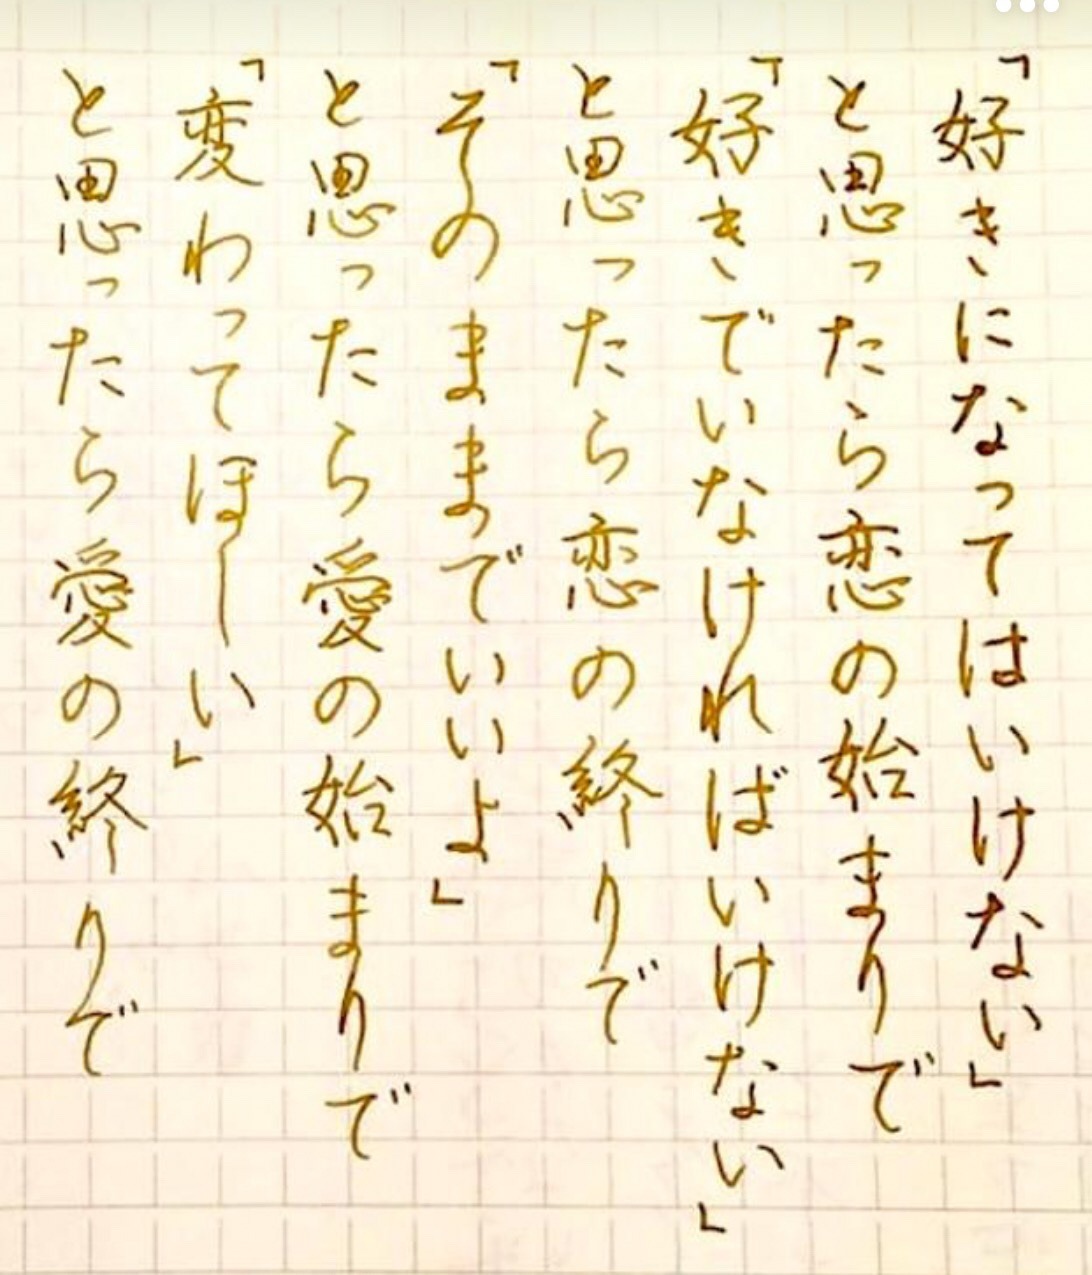 「好きになってはいけない」
と思ったら恋の始まりで
「好きでいなければいけない」
と思ったら恋の終りで
「そのままでいいよ」
と思ったら愛の始まりで
「変わってほしい」
と思ったら愛の終りで